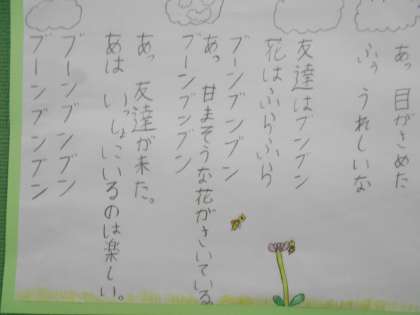 あっ 目がさめた
ふぅ うれしいな
友達はブンブン
花はふらふら
ブーンブンブン
あっ 甘まそうな花がさいている
ブーンブンブン
あっ 友達が来た。
あは いっしょにいるのは楽しい。
ブーンブンブン
ブーンブンブン